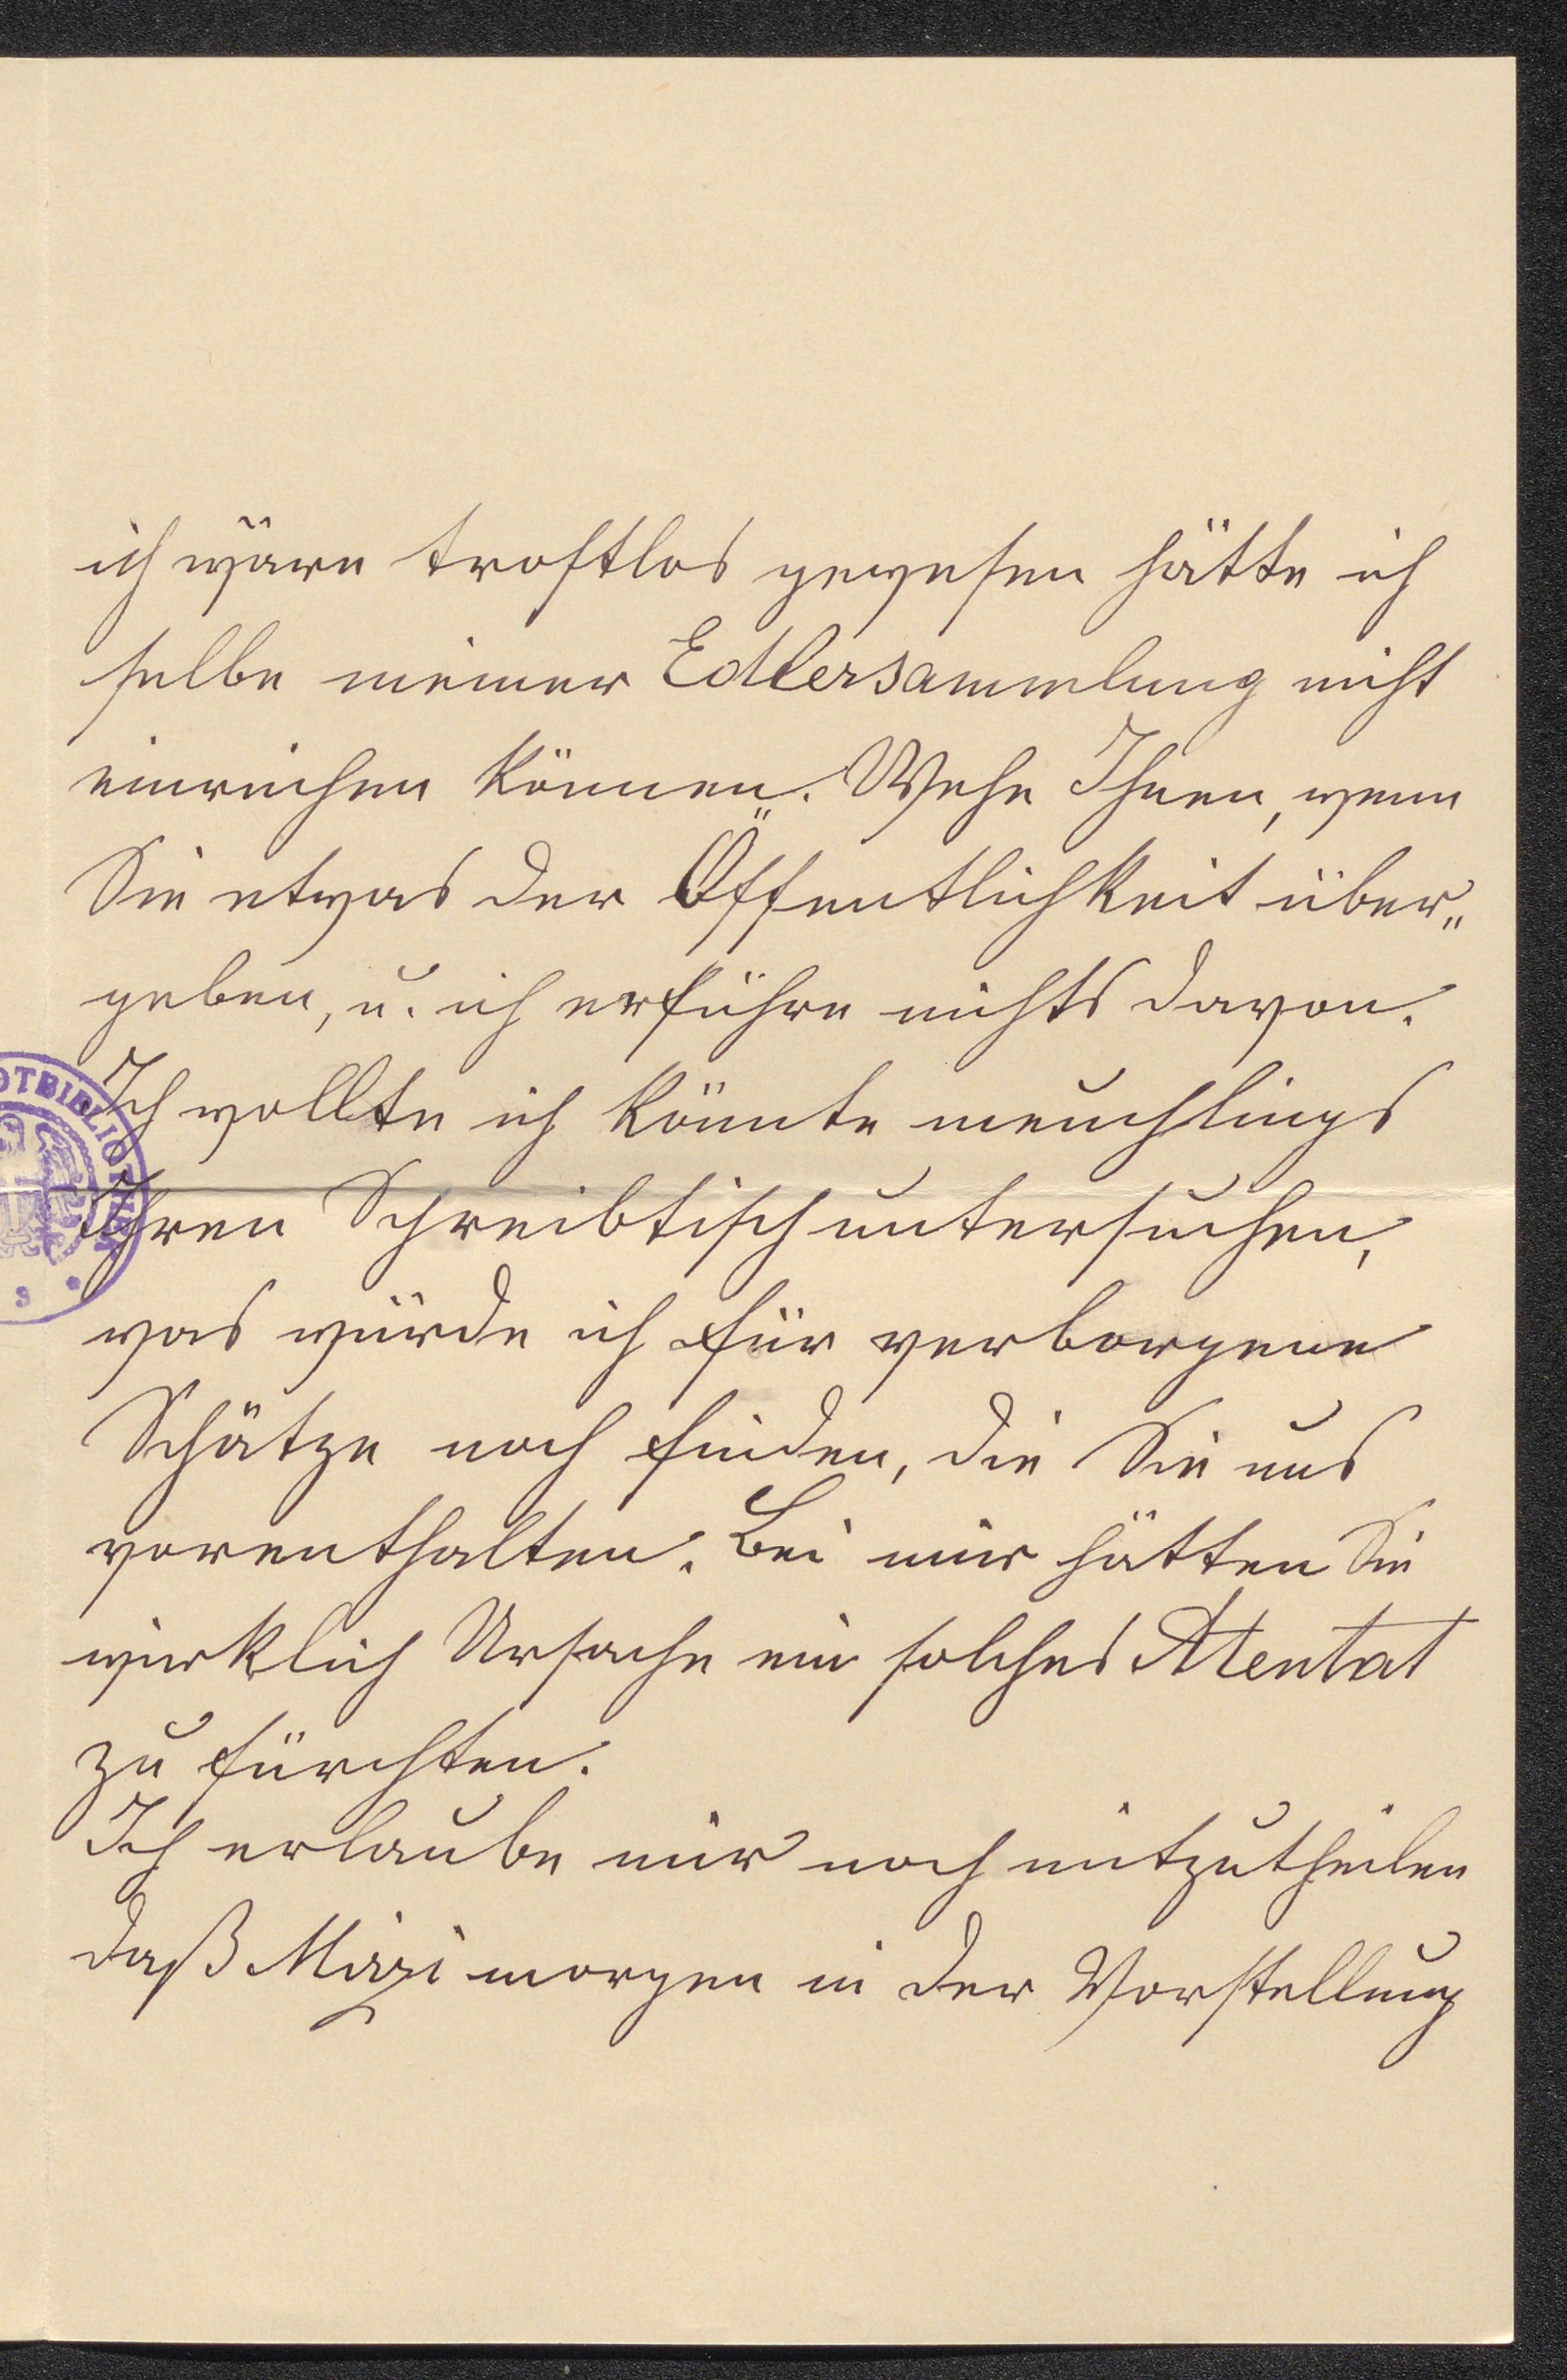 ich wäre trostlos gewesen hätte ich
selbe meiner Edlersammlung nicht
einreihen können. Wehe Ihnen, wenn
Sie etwas der Öffentlichkeit über„
geben, u. ich erführe nichts davon.
Ich wollte ich könnte meuchlings
Ihren Schreibtisch untersuchen,
was würde ich für verborgene
Schätze noch finden, die Sie uns
vorenthalten. Bei mir hätten Sie
wirklich Ursache ein solches Atentat
zu fürchten.
Ich erlaube mir noch mitzutheilen
daß Mizi morgen in der Vorstellung